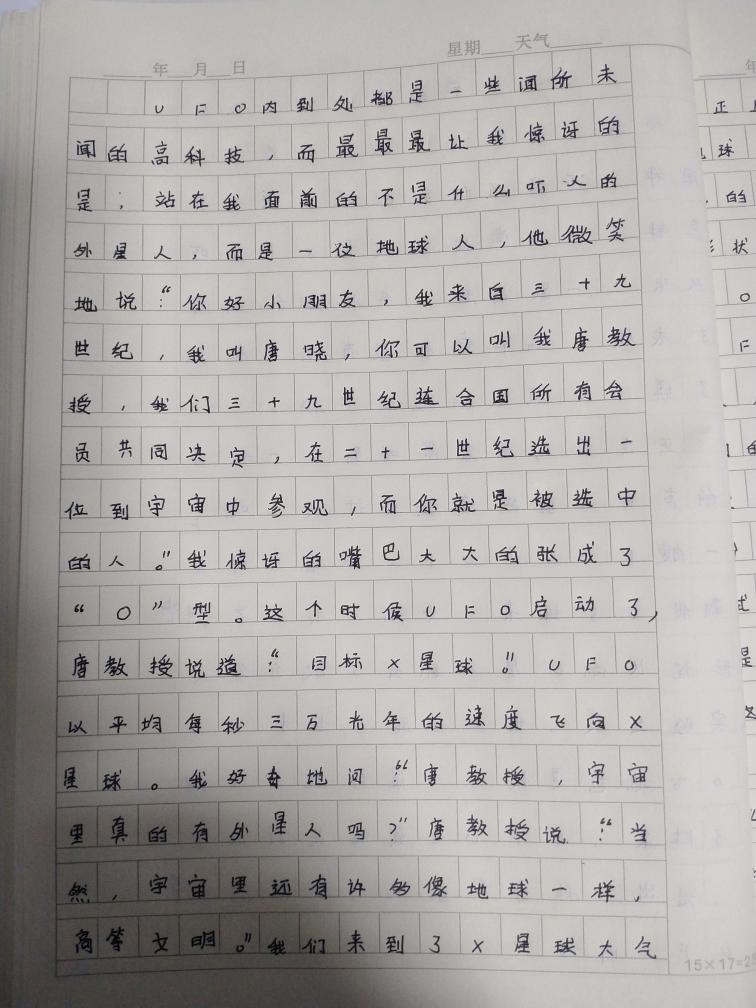 年 月 日 星期 天气
UFO内到处都是一些闻所未
闻的高科技，而最最最让我惊讶的
是；站在我面前的不是什么吓人的
外星人，而是一位地球人，他微笑
地说：“你好小朋友，我来自三十九
世纪，我叫唐晓，你可以叫我唐教
授，我们三十九世纪连合国所有会
员共同决定，在二十一世纪选出一
位到宇宙中参观，而你就是被选中
的人。”我惊讶的嘴巴大大的张成了
“O”型。这个时侯UFO启动了，
唐教授说道：“目标X星球。”UFO
以平均每秒三万光年的速度飞向X
星球。我好奇地问：“唐教授，宇宙
里真的有外星人吗？”唐教授说：“当
然，宇宙里还有许多像地球一样，
高等文明。”我们来到了X星球大气
15×17=25